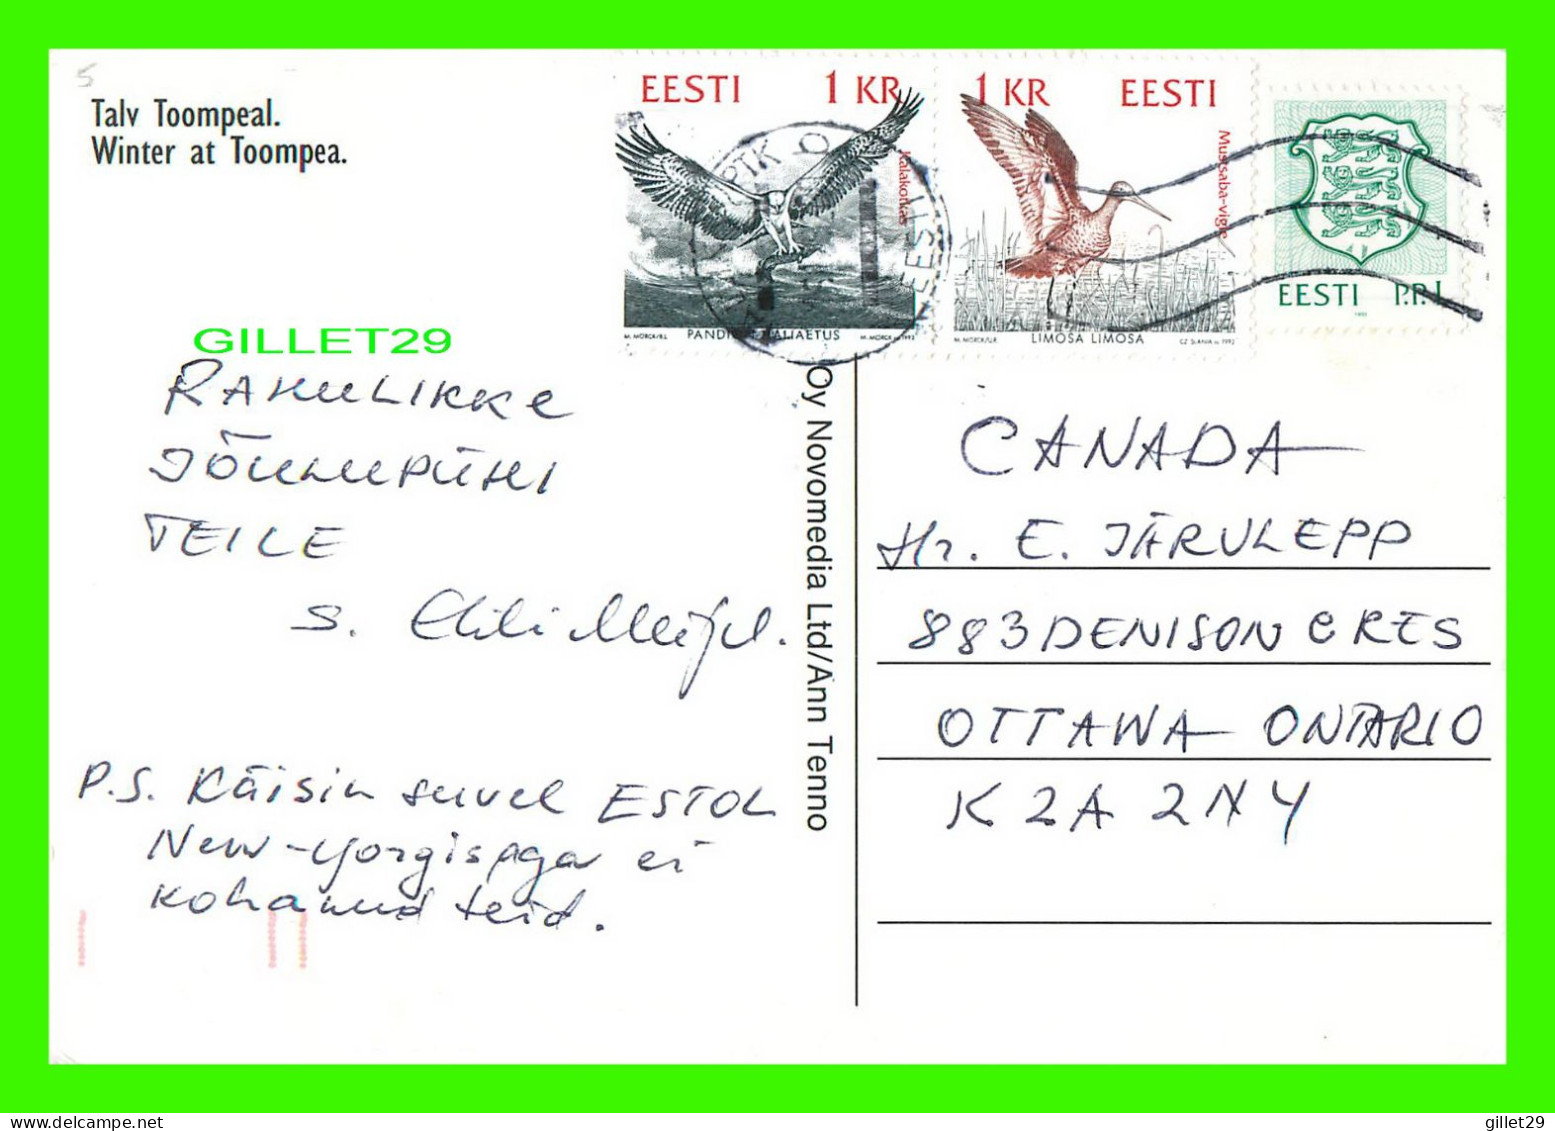 5
Talv Toompeal.
Winter at Toompea.
EESTI 1 KR
Kalakotkas
M. MORCK/R.L PANDION HALIAETUS M. MORCK sc. 1992
1 KR EESTI
Mustsaba-vigle
M. MORCK/LR LIMOSA LIMOSA CZ SLANIA sc. 1992
EESTI P.P.I
EESTI
GILLET29
RAHULIKKE
JÕULUPÜHI
TEILE
S.
P.S. Käisin suvel ESTOL
New-Yorgis aga ei
kohanud teid.
Oy Novomedia Ltd/Ann Tenno
CANADA
Hr. E. JÄRVLEPP
883 DENISON CRES
OTTAWA ONTARIO
K2A 2N4
gillet29